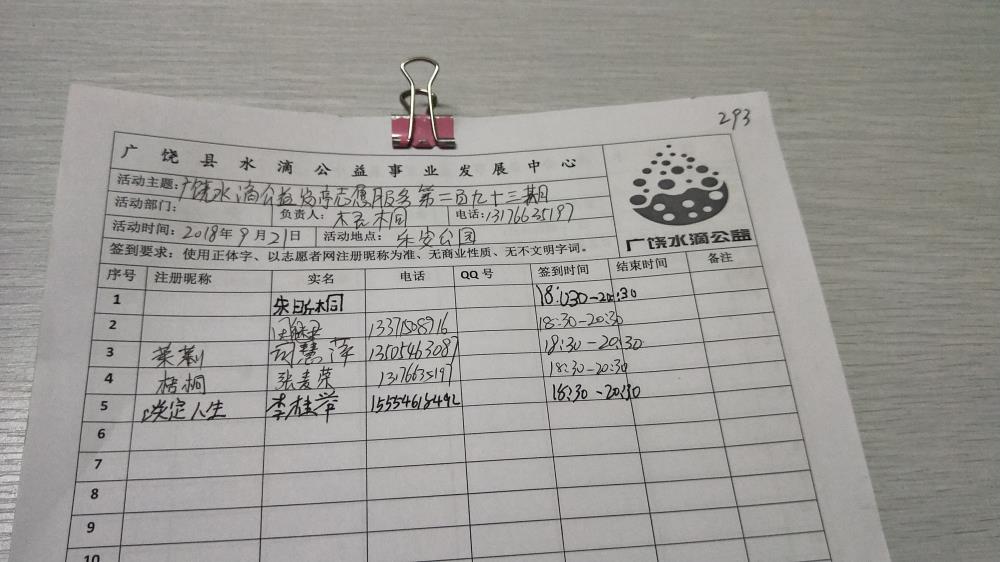 293
广饶县水滴公益事业发展中心
活动主题:广饶水滴公益岗亭志愿服务第二百九十三期
活动部门: 负责人: 梧桐 电话:13176635197
活动时间:2018年9月21日 活动地点: 乐安公园
广饶水滴公益
签到要求:使用正体字、以志愿者网注册昵称为准、无商业性质、无不文明字词。
序号 注册昵称 实名 电话 QQ号 签到时间 结束时间 备注
1 18:30-20:30
2 13371508916 18:30-20:30
3 茉莉 司慧萍 13505463087 18:30-20:30
4 梧桐 张麦荣 13176635197 18:30-20:30
5 淡定人生 李桂举 15554618492 18:30-20:30
6
7
8
9
10